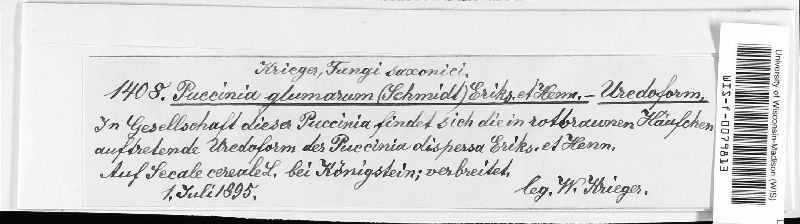 Krieger, Fungi saxonici.
1408. Puccinia glumarum (Schmidt) Eriks. et Henn. – Uredoform.
In Gesellschaft dieser Puccinia findet sich die in rotbraunen Häufchen
auftretende Uredoform der Puccinia dispersa Eriks. et Henn.
Auf Secale cereale L. bei Königstein; verbreitet.
1. Juli 1895. leg. W. Krieger.
University of Wisconsin-Madison (WIS)
WIS-f-0079813